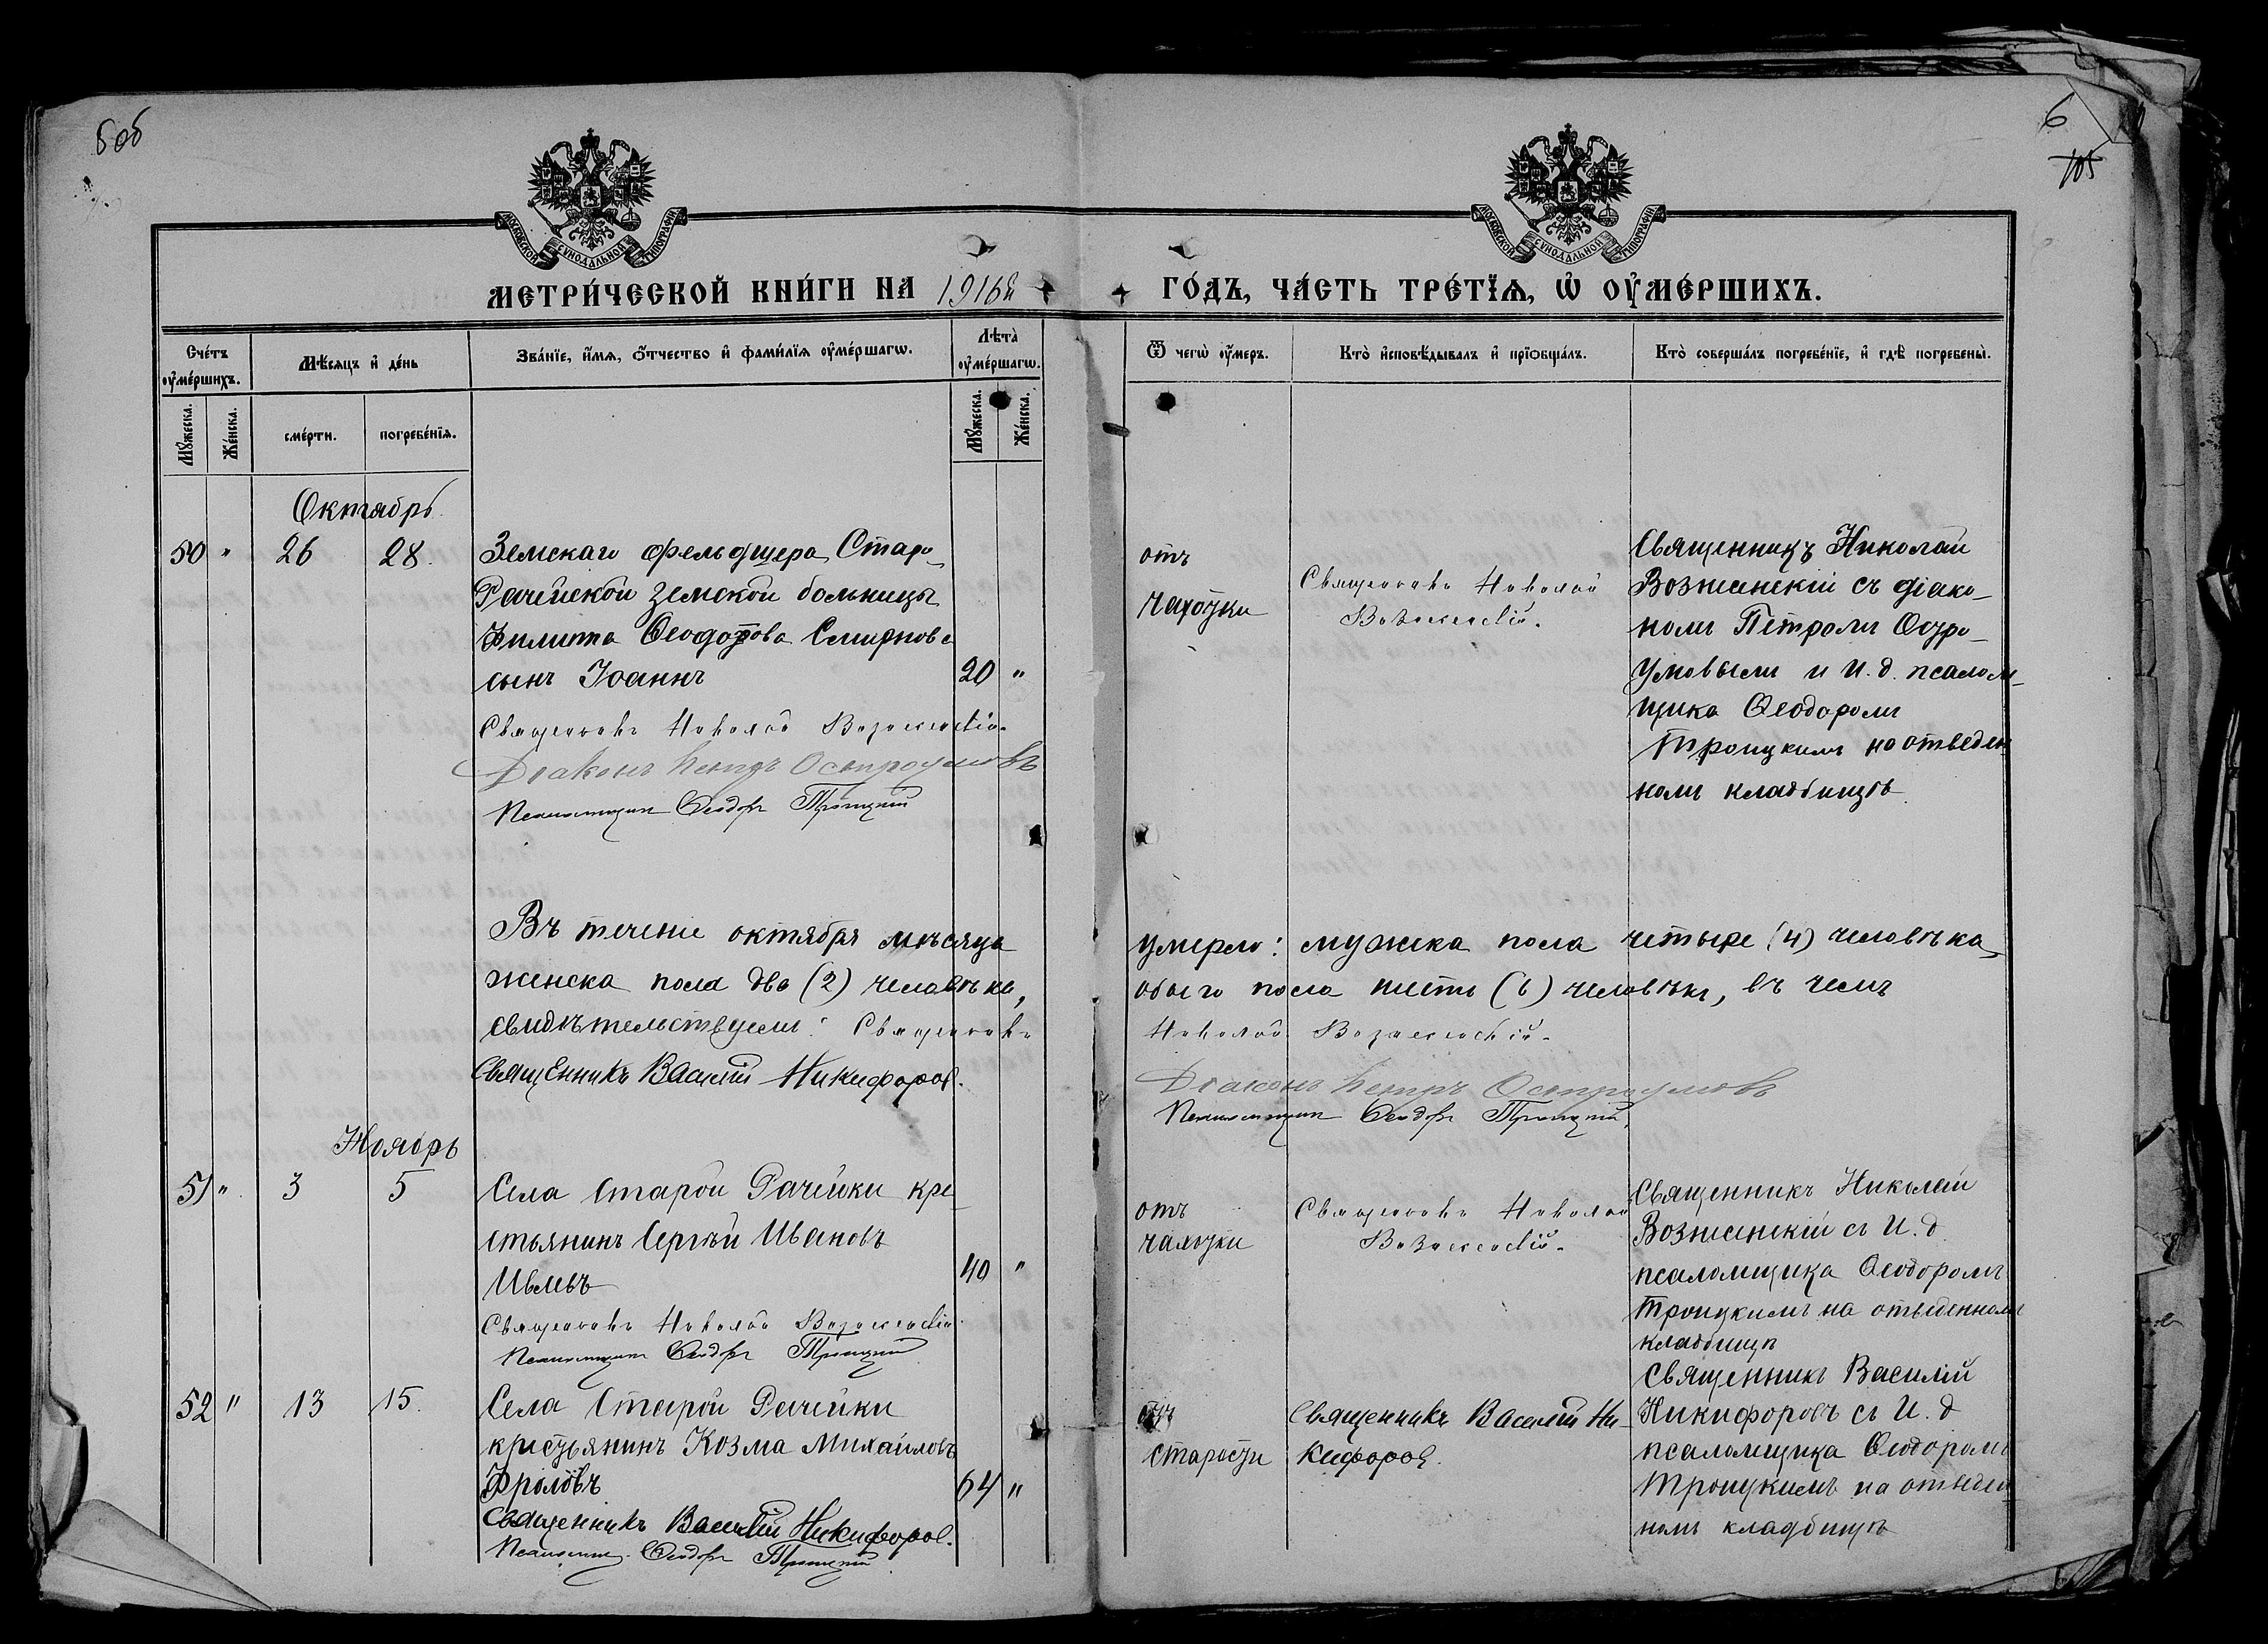 5об
6
105
МОСКОВСКОЙ СУНОДАЛЬНОЙ ТИПОГРАФІИ
МОСКОВСКОЙ СУНОДАЛЬНОЙ ТИПОГРАФІИ
МЕТРИ́ЧЕСКОЙ КНИ́ГИ НА 1916й
ГО́ДЪ, ЧА́СТЬ ТРЕ́ТЇѦ, Ѡ҆ ОУ҆МЕ́РШИХЪ.
Сче́тъ оу҆ме́ршихъ.
Мѣ́сяцъ и҆ де́нь
Зва́нїе, и҆́мѧ, ѻ҆́тчество и҆ фами́лїѧ оу҆ме́ршагѡ.
Лѣ́та оу҆ме́ршагѡ.
Ѿ чегѡ̀ оу҆́меръ.
Кто̀ и҆сповѣ́дывалъ и҆ прїѻбща́лъ.
Кто̀ соверша́лъ погребе́нїе, и҆ гдѣ̀ погребены̀.
Мꙋ́жеска.
Же́нска.
сме́рти.
погребе́нїѧ.
Мꙋ́жеска.
Же́нска.
Октябрь
50 " 26 28.
Земскаго фельдшера Старо-
Рачейской земской больницы
Филиппа Ѳеодорова Смирнова
сынъ Іоаннъ 20 "
Священникъ Николай Вознесенскій.
Діаконъ Петръ Остроумовъ
Псаломщик Ѳеодоръ Троицкій
отъ
чахотки
Священникъ Николай
Вознесенскій.
Священникъ Николай
Вознесенскій съ діако-
номъ Петромъ Остро-
умовымъ и И. д. псалом-
щика Ѳеодоромъ
Троицкимъ на отведен
номъ кладбищѣ
Въ теченіе октября мѣсяца умерло: мужска пола четыре (4) человѣка,
женска пола два (2) человѣка, обоего пола шесть (6) человѣкъ, въ чемъ
свидѣтельствуемъ: Священникъ Николай Вознесенскій.
Священникъ Василій Никифоров.
Діаконъ Петръ Остроумовъ
Псаломщик Ѳеодоръ Троицкій.
Ноябрь
51 " 3 5
Села Старой Рачейки кре
стьянинъ Сергѣй Ивановъ
Ивлевъ 40 "
Священникъ Николай Вознесенскій.
Псаломщик Ѳеодоръ Троицкій
отъ
чахотки
Священникъ Николай
Вознесенскій.
Священникъ Николай
Вознесенскій съ И. д
псаломщика Ѳеодоромъ
Троицкимъ на отведенномъ
кладбищѣ
52 " 13 15.
Села Старой Рачейки
крестьянинъ Козма Михайловъ
Фроловъ 64 "
Священникъ Василій Никифоров.
Псаломщ. Ѳеодоръ Троицкій
отъ
старости
Священникъ Василій Ни-
кифоров.
Священникъ Василій
Никифоровъ съ И. д
псаломщика Ѳеодоромъ
Троицкимъ на отведен
номъ кладбищѣ